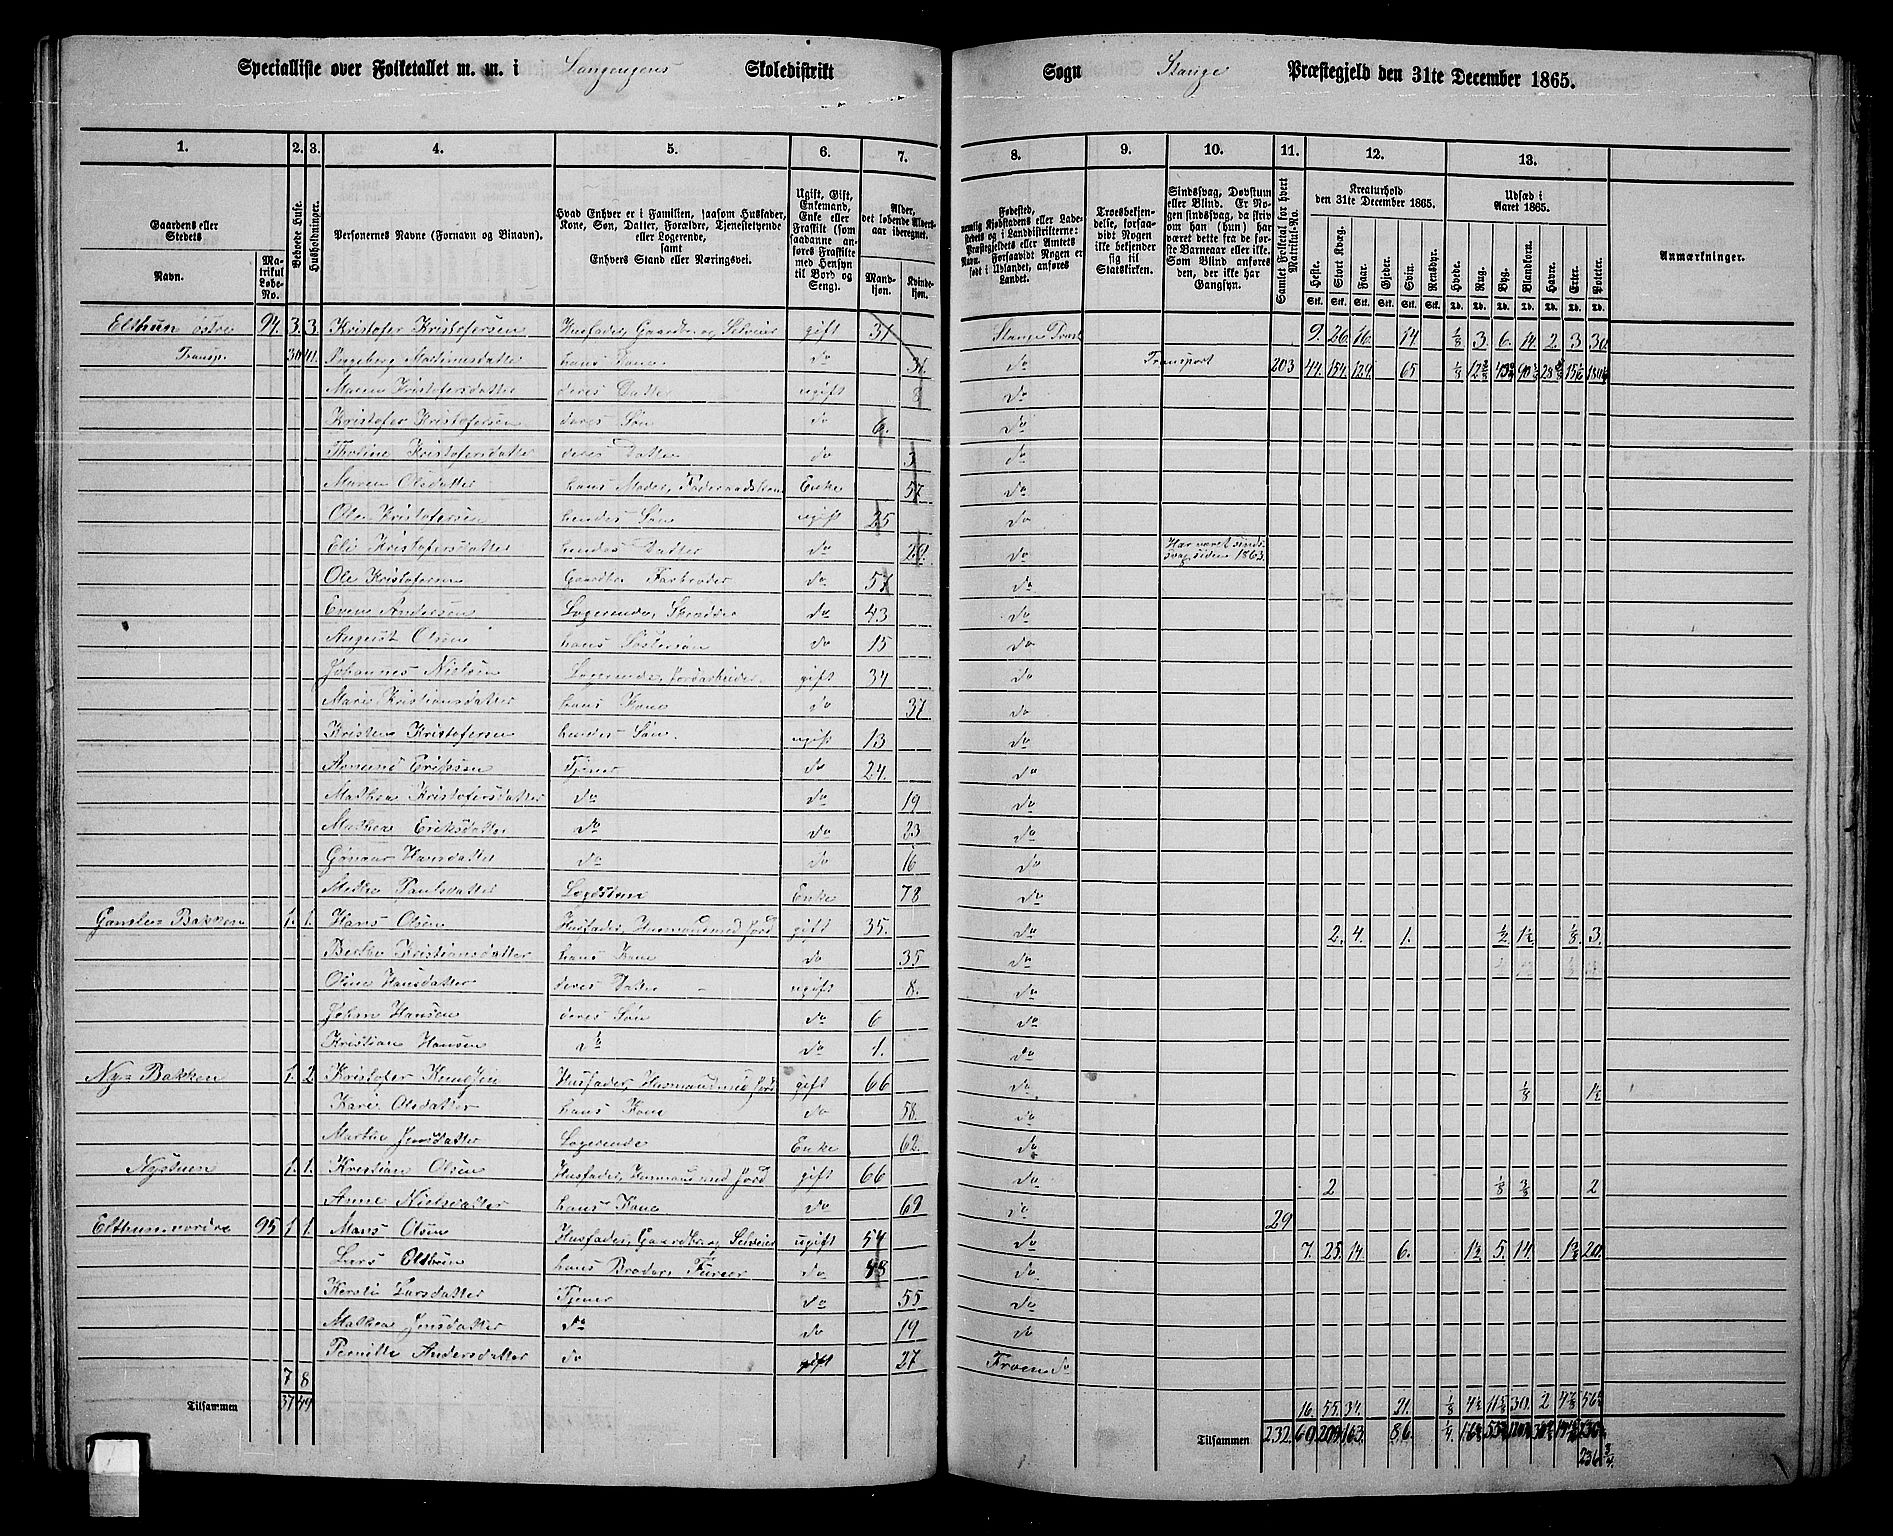 Specialliste over Folketallet m. m. i Langengens Skoledistrikt
Sogn Stange Præstegjeld den 31te December 1865.
1. 2. 3. 4. 5. 6. 7. 8. 9. 10. 11. 12. 13.
Gaardens eller Stedets Navn. Matrikul Løbe-No.
Beboede Huse.
Husholdninger.
Personernes Navne (Fornavn og Binavn).
Hvad Enhver er i Familien, saasom Husfader, Kone, Søn, Datter, Forældre, Tjenestetyende eller Logerende, samt Enhvers Stand eller Næringsvei.
Ugift, Gift, Enkemand, Enke eller Fraskilt (som saadanne anføres Fraskilte med Hensyn til Bord og Seng).
Alder, det løbende Alders-aar iberegnet. Mandkjøn. Kvindekjøn.
Fødested, nemlig Kjøbstadens eller Ladestedets og i Landdistrikterne: Præstegjeldets eller Amtets Navn. Forsaavidt Nogen er født i Udlandet, anføres Landet.
Troesbekjendelse, forsaavidt Nogen ikke bekjender sig til Statskirken.
Sindssvag, Døvstum eller Blind. Er Nogen sindssvag, da skriv om han (hun) har været dette fra de første Barneaar eller ikke. Som Blind anføres den, der ikke har Gangsyn.
Samlet Folketal for hvert Matrikul-No.
Kreaturhold den 31te December 1865. Heste. Stort Kvæg. Faar. Gjeder. Svin. Rensdyr.
Udsæd i Aaret 1865. Hvede. Rug. Byg. Blandkorn. Havre. Erter. Poteter.
Anmærkninger.
Elthun østre 94. 3. 3. Kristofer Kristofersen Husfader, Gaardbr. og Selveier gift 31 Stange Præst. 9. 26. 16. 14. 1/8 3. 6. 14. 2. 3 30
Transp. 30 41. Ingeborg Martinusdatter hans Kone do 31 do Transport 203 44. 154. 124. 65
Maren Kristofersdatter deres Datter ugift 8 do
Kristofer Kristofersen deres Søn do 6. do
Thorine Kristofersdatter deres Datter do 3 do
Maren Olsdatter hans Moder, Føderaadskone Enke 57 do
Ole Kristofersen hendes Søn ugift 25 do
Eli Kristofersdatter hendes Datter do 20. do Har været sindssvag siden 1863.
Ole Kristofersen Gaardbr. Farbroder do 57 do
Even Andersen Logerende, Skrædder do 43 do
August Olsen hans Søstersøn do 15 do
Johannes Nielsen Logerende, Jordarbeider. gift 34 do
Mari Kristiansdatter hans Kone do 37 do
Kristen Kristofersen hendes Søn. ugift 13 do
Amund Eriksen Tjener do 24. do
Mathea Kristofersdatter do do 19 do
Mathea Eriksdatter do do 23 do
Gunnor Hansdatter do do 16 do
Paulsdatter Enke 78 do
Bakken 1. 1. Hans Olsen Husfader, Husmand med Jord gift 35. do 2. 4. 1. 1/2 1 1/2 1/8. 3.
Berthe Kristiansdatter hans Kone do 35 do
Oline Hansdatter deres Datter ugift 8. do
Johan Hansen deres Søn do 6 do
Kristian Hansen do do 1. do
Nye Bakken 1. 2 Kristofer Knudsen Husfader, Husmand med Jord gift 66 do 1/8 1 1/2
Kari Olsdatter hans Kone do 58. do
Marthe Jensdatter Logerende Enke 62. do
Nystuen 1. 1. Kristian Olsen Husfader, Husmand med Jord gift 66 do 2 1/8 3/8 2
Anne Nielsdatter hans Kone do 69 do
29
Elthun nordre 95 1. 1. Mons Olsen Husfader, Gaardbr. og Selveier ugift 54 do 7. 25. 14. 6. 1 1/2 5. 14. 1 1/2 20.
Lars Olsen hans Broder, do 48 do
Kersti Larsdatter Tjener do 55 do
Mathea Jensdatter do do 19 do
Pernille Andersdatter do gift 27 do
7 8
Tilsammen 37 44
16. 55. 34. 21. 1/8 4 1/2 11 5/8 30. 2 4 7/8 56 1/2
Tilsammen 232. 60. 209. 163. 86. 1/4.
236 3/4.